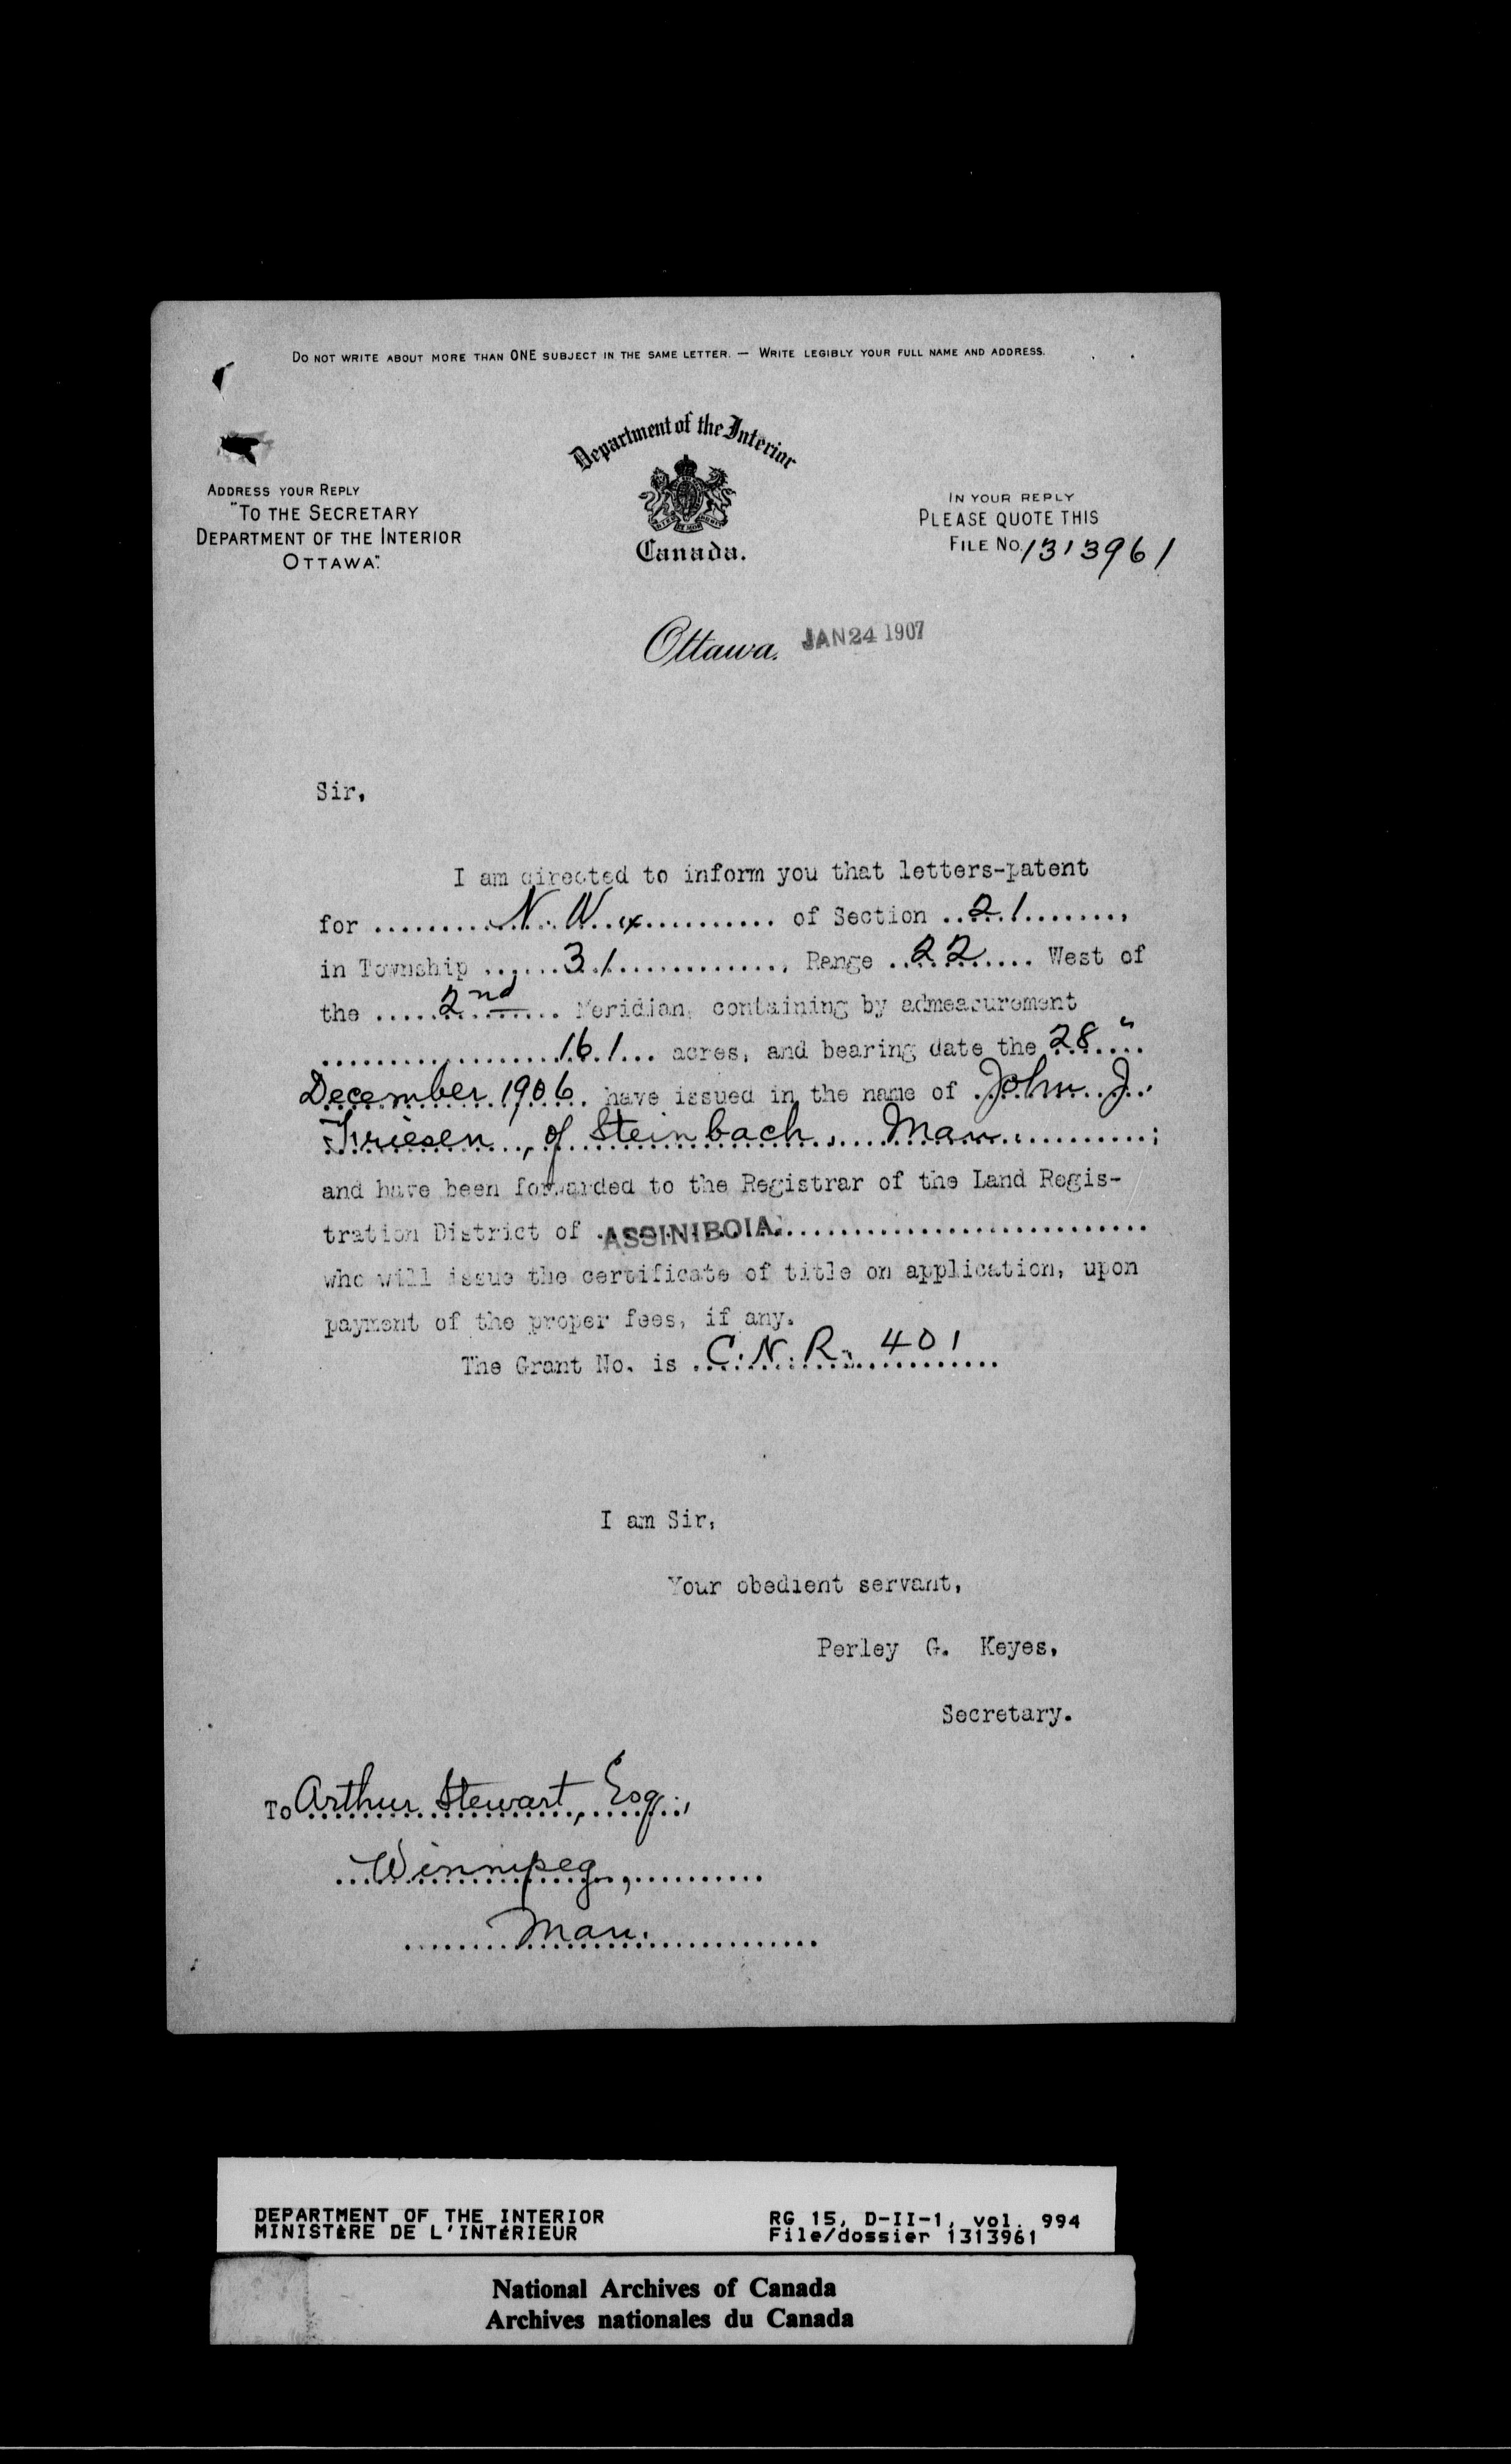 Do not write about more than ONE subject in the same letter. — Write legibly your full name and address.
Department of the Interior
Canada.
Address your Reply
"To the Secretary
Department of the Interior
Ottawa."
In your reply
Please quote this
File No. 1313961
Ottawa. JAN 24 1907
Sir,
I am directed to inform you that letters-patent
for ......... N. W. ¼ ............ of Section ..21........,
in Township ......31..............., Range ..22...... West of
the .....2nd....... Meridian, containing by admeasurement
....................161... acres, and bearing date the 28 "....
December 1906. have issued in the name of John J.
Friesen, of Steinbach, Man. ..........;
and have been forwarded to the Registrar of the Land Regis-
tration District of ASSINIBOIA...........................
who will issue the certificate of title on application, upon
payment of the proper fees, if any.
The Grant No. is C. N. R. 401
I am Sir,
Your obedient servant,
Perley G. Keyes,
Secretary.
To Arthur Stewart, Esq.,
Winnipeg,
Man.
DEPARTMENT OF THE INTERIOR RG 15, D-II-1, vol. 994
MINISTÈRE DE L'INTÉRIEUR File/dossier 1313961
National Archives of Canada
Archives nationales du Canada